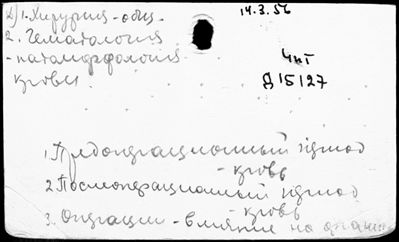 Д) 1. Хирургия - общ. 14.3.56
2. Гематология
- патоморфология
крови
ЧиТ
Д 15127
1. Предоперационный период
- кровь
2. Послеоперационный период
- кровь
3. Операции - влияние на организм